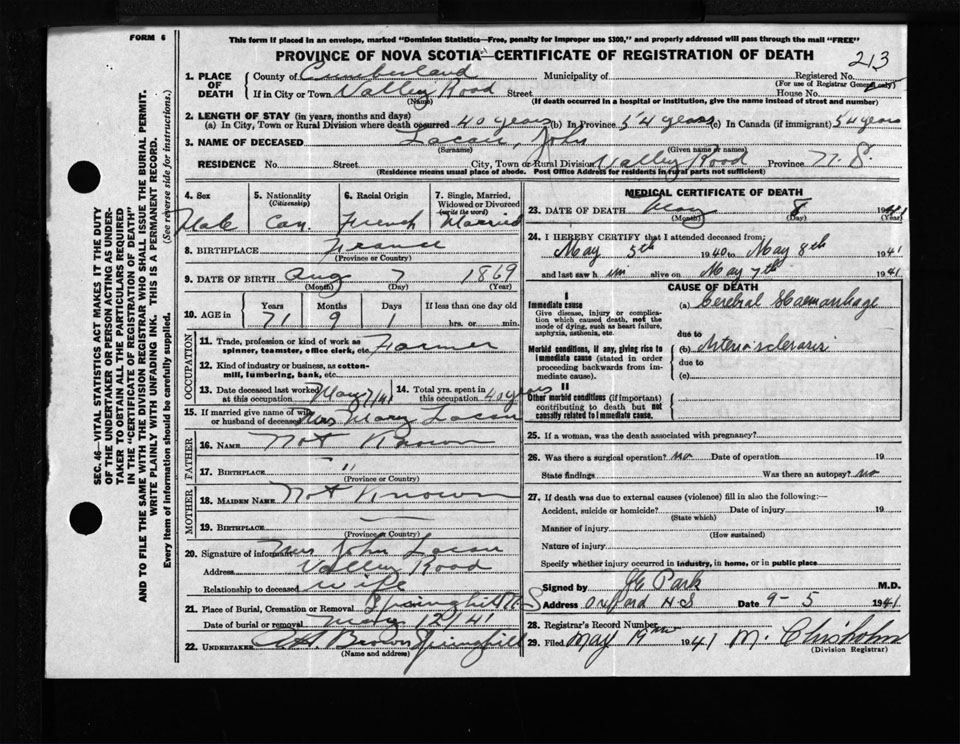 FORM 6
This form if placed in an envelope, marked "Dominion Statistics—Free, penalty for improper use $300," and properly addressed will pass through the mail "FREE"
PROVINCE OF NOVA SCOTIA—CERTIFICATE OF REGISTRATION OF DEATH
213
1. PLACE OF DEATH County of Cumberland Municipality of Registered No.
(For use of Registrar General only)
If in City or Town Valley Road Street House No.
(Name) (If death occurred in a hospital or institution, give the name instead of street and number)
2. LENGTH OF STAY (in years, months and days)
(a) In City, Town or Rural Division where death occurred 40 years (b) In Province 54 years (c) In Canada (if immigrant) 54 years
3. NAME OF DECEASED John
(Surname) (Given name or names)
RESIDENCE No. Street City, Town or Rural Division Valley Road Province N.S.
(Residence means usual place of abode. Post Office Address for residents in rural parts not sufficient)
4. Sex 5. Nationality (Citizenship) 6. Racial Origin 7. Single, Married, Widowed or Divorced (write the word)
Male Can. French Married
8. BIRTHPLACE France
(Province or Country)
9. DATE OF BIRTH Aug 7 1869
(Month) (Day) (Year)
10. AGE in Years Months Days If less than one day old
71 9 1 hrs. or min.
OCCUPATION
11. Trade, profession or kind of work as spinner, teamster, office clerk, etc. Farmer
12. Kind of industry or business, as cotton-mill, lumbering, bank, etc.
13. Date deceased last worked at this occupation May 7/41 14. Total yrs. spent in this occupation 40 years
15. If married give name of wife or husband of deceased Mrs Mary
FATHER
16. NAME Not Known
17. BIRTHPLACE "
(Province or Country)
MOTHER
18. MAIDEN NAME Not Known
19. BIRTHPLACE —
(Province or Country)
20. Signature of informant Mrs John
Address Valley Road
Relationship to deceased wife
21. Place of Burial, Cremation or Removal Springhill N S
Date of burial or removal May 12/41
22. UNDERTAKER Brown Springhill
(Name and address)
MEDICAL CERTIFICATE OF DEATH
23. DATE OF DEATH May 8 1941
(Month) (Day) (Year)
24. I HEREBY CERTIFY that I attended deceased from:
May 5th 1940 to May 8th 1941
and last saw him alive on May 7th 1941
CAUSE OF DEATH
I
Immediate cause (a) Cerebral Haemorrhage
Give disease, injury or complication which caused death, not the mode of dying, such as heart failure, asphyxia, asthenia, etc.
due to
Morbid conditions, if any, giving rise to immediate cause (stated in order proceeding backwards from immediate cause).
(b) Arteriosclerosis
due to
(c)
II
Other morbid conditions (if important) contributing to death but not causally related to immediate cause.
25. If a woman, was the death associated with pregnancy?
26. Was there a surgical operation? no Date of operation 19
State findings Was there an autopsy? no
27. If death was due to external causes (violence) fill in also the following:—
Accident, suicide or homicide? Date of injury 19
(State which)
Manner of injury
(How sustained)
Nature of injury
Specify whether injury occurred in industry, in home, or in public place
Signed by Park M.D.
Address Oxford N S Date 9-5 1941
28. Registrar's Record Number
29. Filed May 19th 1941 M. Chisholm
(Division Registrar)
SEC. 46—VITAL STATISTICS ACT MAKES IT THE DUTY
OF THE UNDERTAKER OR PERSON ACTING AS UNDER-
TAKER TO OBTAIN ALL THE PARTICULARS REQUIRED
IN THE "CERTIFICATE OF REGISTRATION OF DEATH"
AND TO FILE THE SAME WITH THE DIVISION REGISTRAR WHO SHALL ISSUE THE BURIAL PERMIT.
WRITE PLAINLY WITH UNFADING INK. THIS IS A PERMANENT RECORD.
Every item of information should be carefully supplied. (See reverse side for instructions.)